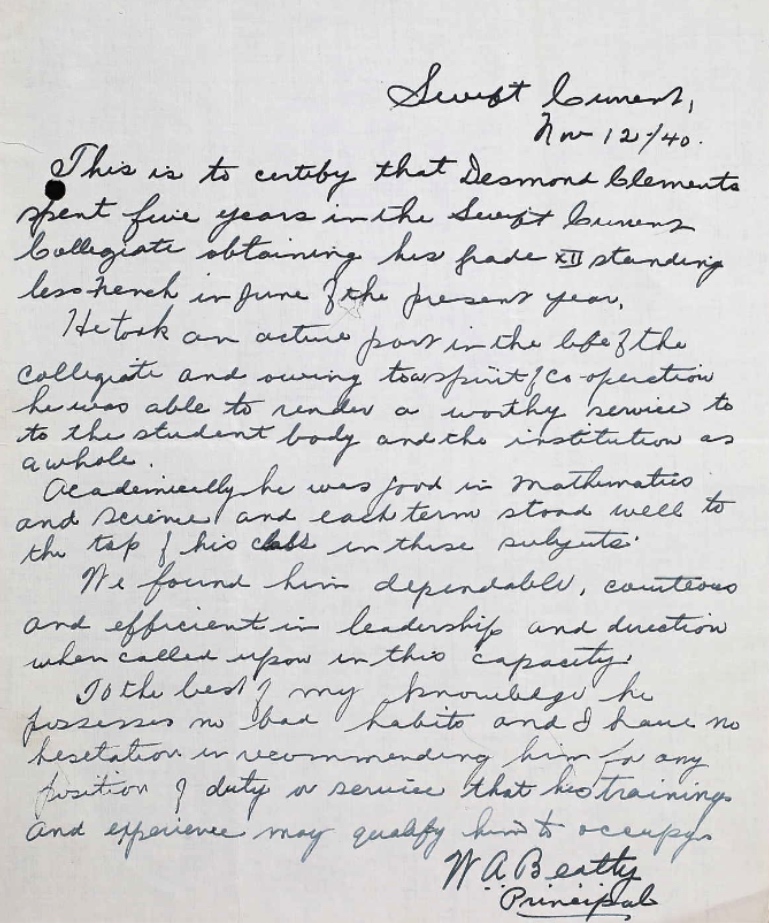 Swift Current,
Nov 12/40.
This is to certify that Desmond Clements
spent five years in the Swift Current
Collegiate obtaining his grade XII standing
less French in June of the present year.
He took an active part in the life of the
collegiate and owing to a spirit of co operation
he was able to render a worthy service to
to the student body and the institution as
a whole.
Academically he was good in Mathematics
and Science and each term stood well to
the top of his class in these subjects.
We found him dependable, courteous
and efficient in leadership and direction
when called upon in this capacity.
To the best of my knowledge he
possesses no bad habits and I have no
hesetation in recommending him for any
position of duty or service that his trainings
and experience may qualify him to occupy.
W A Beatty
Principal